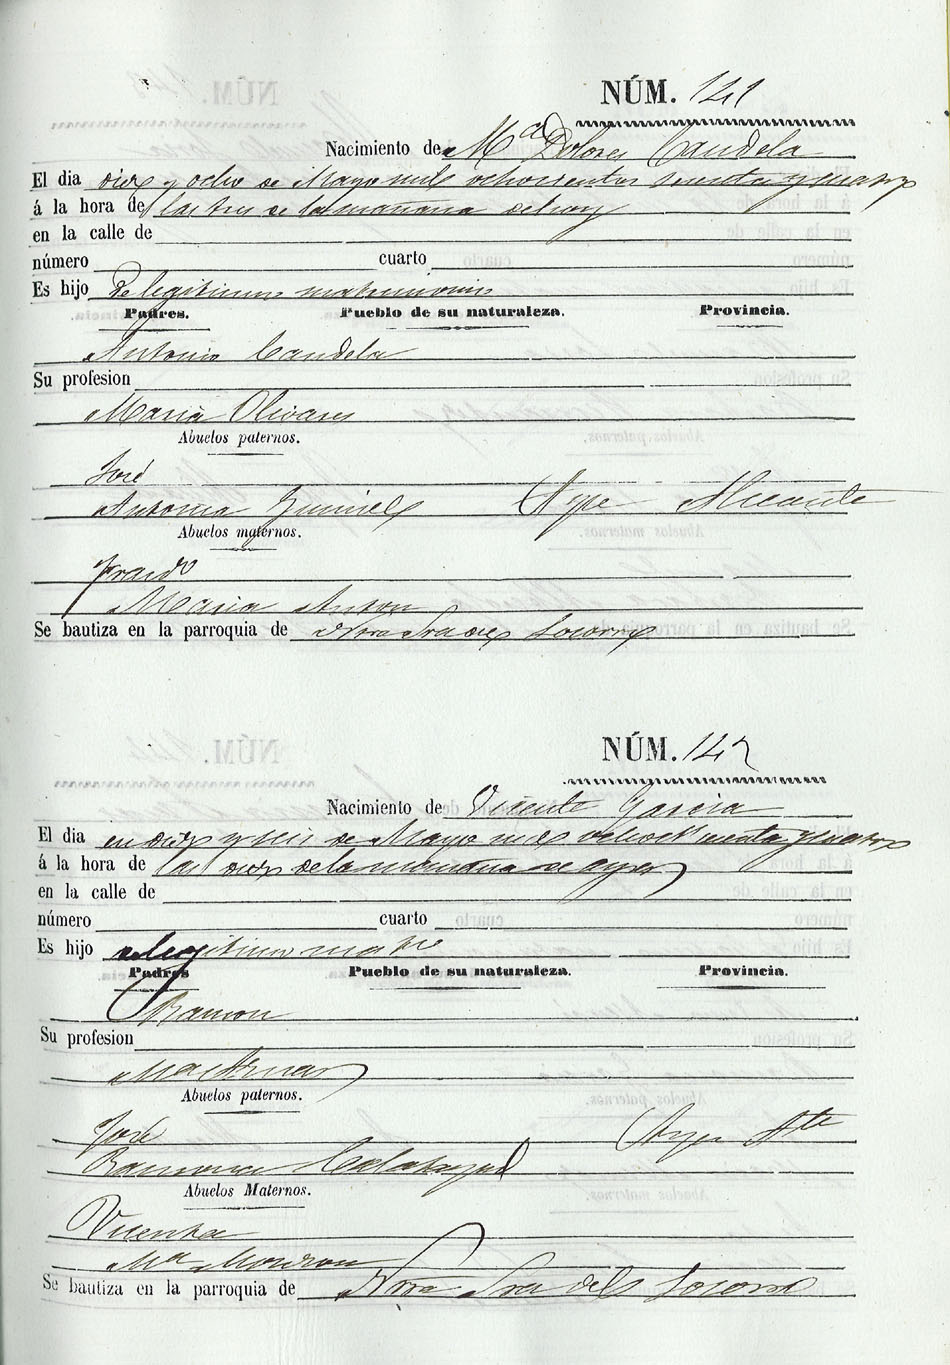 NÚM. 141
Nacimiento de Mª Dolores Candela
El dia diez y ocho de Mayo mil ochocientos setenta y cuatro
á la hora de las tres de la mañana del hoy
en la calle de
número cuarto
Es hijo de legitimo matrimonio
Padres. Pueblo de su naturaleza. Provincia.
Antonio Candela
Su profesion
Maria Olivares
Abuelos paternos.
José
Antonia Aspe Alicante
Abuelos maternos.
Maria Anton
Se bautiza en la parroquia de Ntra Sra del Socorro
NÚM. 142
Nacimiento de Vicente Garcia
El dia en diez y seis de Mayo mil ochoct setenta y cuatro
á la hora de las diez de la mañana de ayer
en la calle de
número cuarto
Es hijo de legitimo matre
Padres Pueblo de su naturaleza. Provincia.
Ramon
Su profesion
Mª
Abuelos paternos.
José Aspe Alte
Ramona Calatayud
Abuelos Maternos.
Vicente
Mª Monzon
Se bautiza en la parroquia de Ntra Sra del Socorro